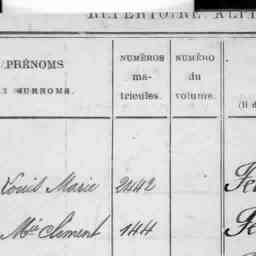 RÉPERTOIRE ALPH
PRÉNOMS
SURNOMS.
NUMÉROS
ma-
tricules.
NUMÉRO
du
volume.
(Il d
Louis Marie 2442
Mie Clément 144